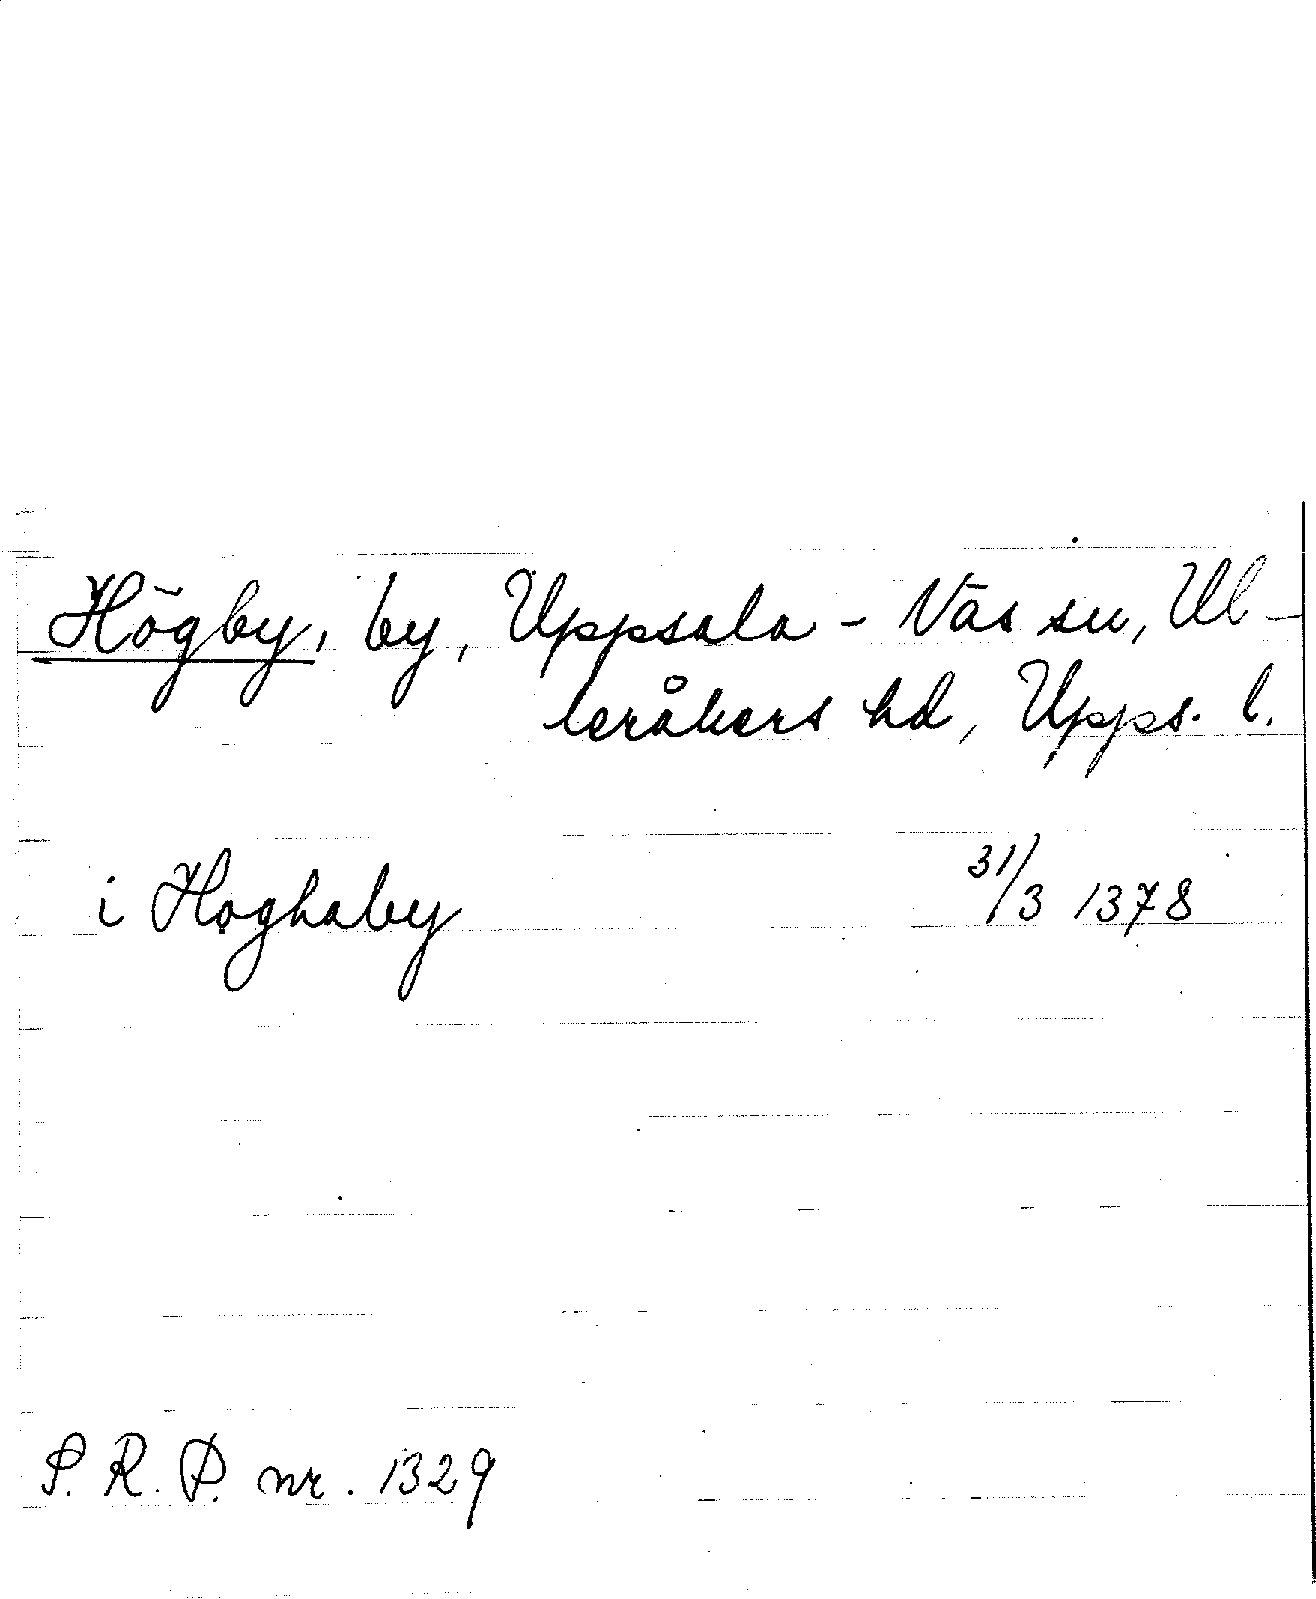 Högby, by, Uppsala-Näs sn, Ul-
leråkers hd, Upps. l.
i Høghaby 31/3 1378
S. R. P. nr. 1329